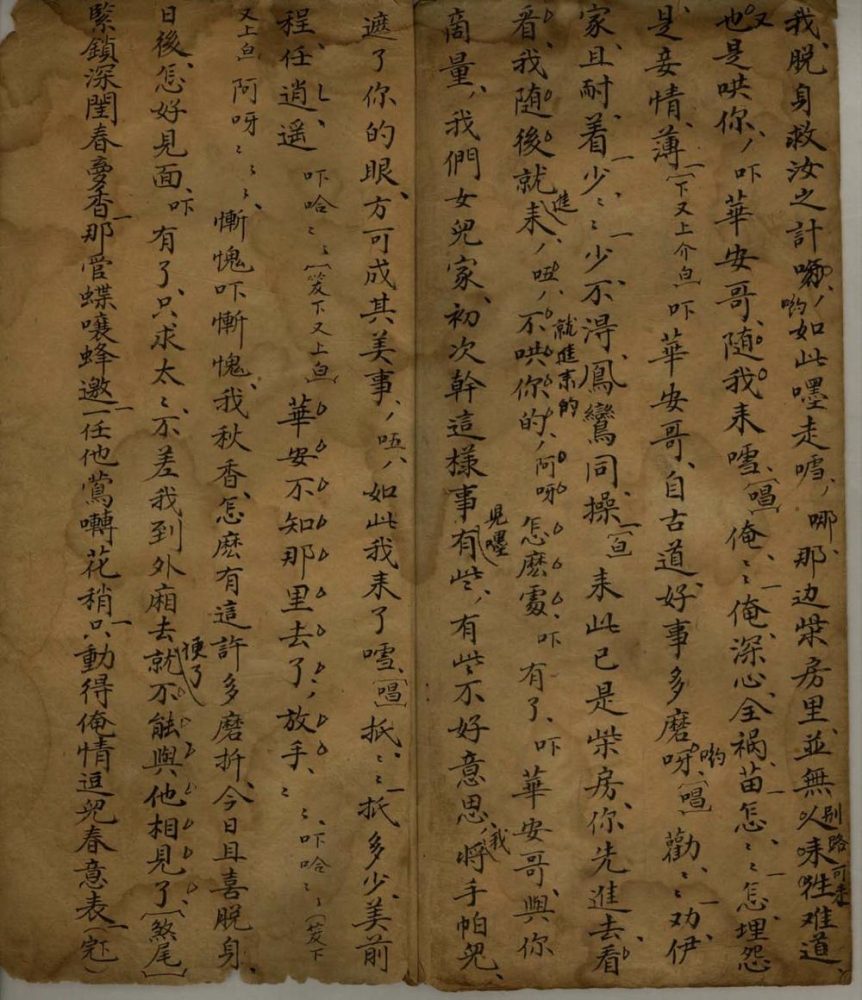 我、脱身救汝之計嚛、哟如此嚜走嘘、哪、那边柴房里、並無人来往难道、别路可来
也又是哄你、吓華安哥、随我来嘘、〔唱〕俺〻俺深心全祸苗怎〻怎埋怨
是妾情薄、〔下又上介白〕吓華安哥、自古道、好事多磨呀、哟〔唱〕勸〻劝伊
家、且耐着少〻少不淂鳳鸞同操、〔白〕来此已是柴房、你先進去看
看、我随後就来、進哑、不哄你的、就進来的阿呀怎麽處、吓有了、吓華安哥、與你
商量、我們女兒家、初次幹這樣事、有些、見嚜有些不好意思、我将手帕兒、
遮了你的眼、方可成其美事、唔、如此我来了嘘、〔唱〕抵〻抵多少美前
程、任逍遥吓哈〻〻〔笑下又上白〕華安不知那里去了、放手、〻〻吓哈〻〻〔笑下
又上白〕阿呀〻〻〻、慚愧吓慚愧、我秋香、怎麽有這許多磨折、今日且喜脱身、
日後、怎好見面、吓有了、只求太〻、不差我到外廂去、就便了不能與他相見了、〔煞尾〕
緊鎖深閨春夢香、那管蝶嚷蜂邀、一任他鶯囀花稍、只動得俺情逗兒春意表（完）